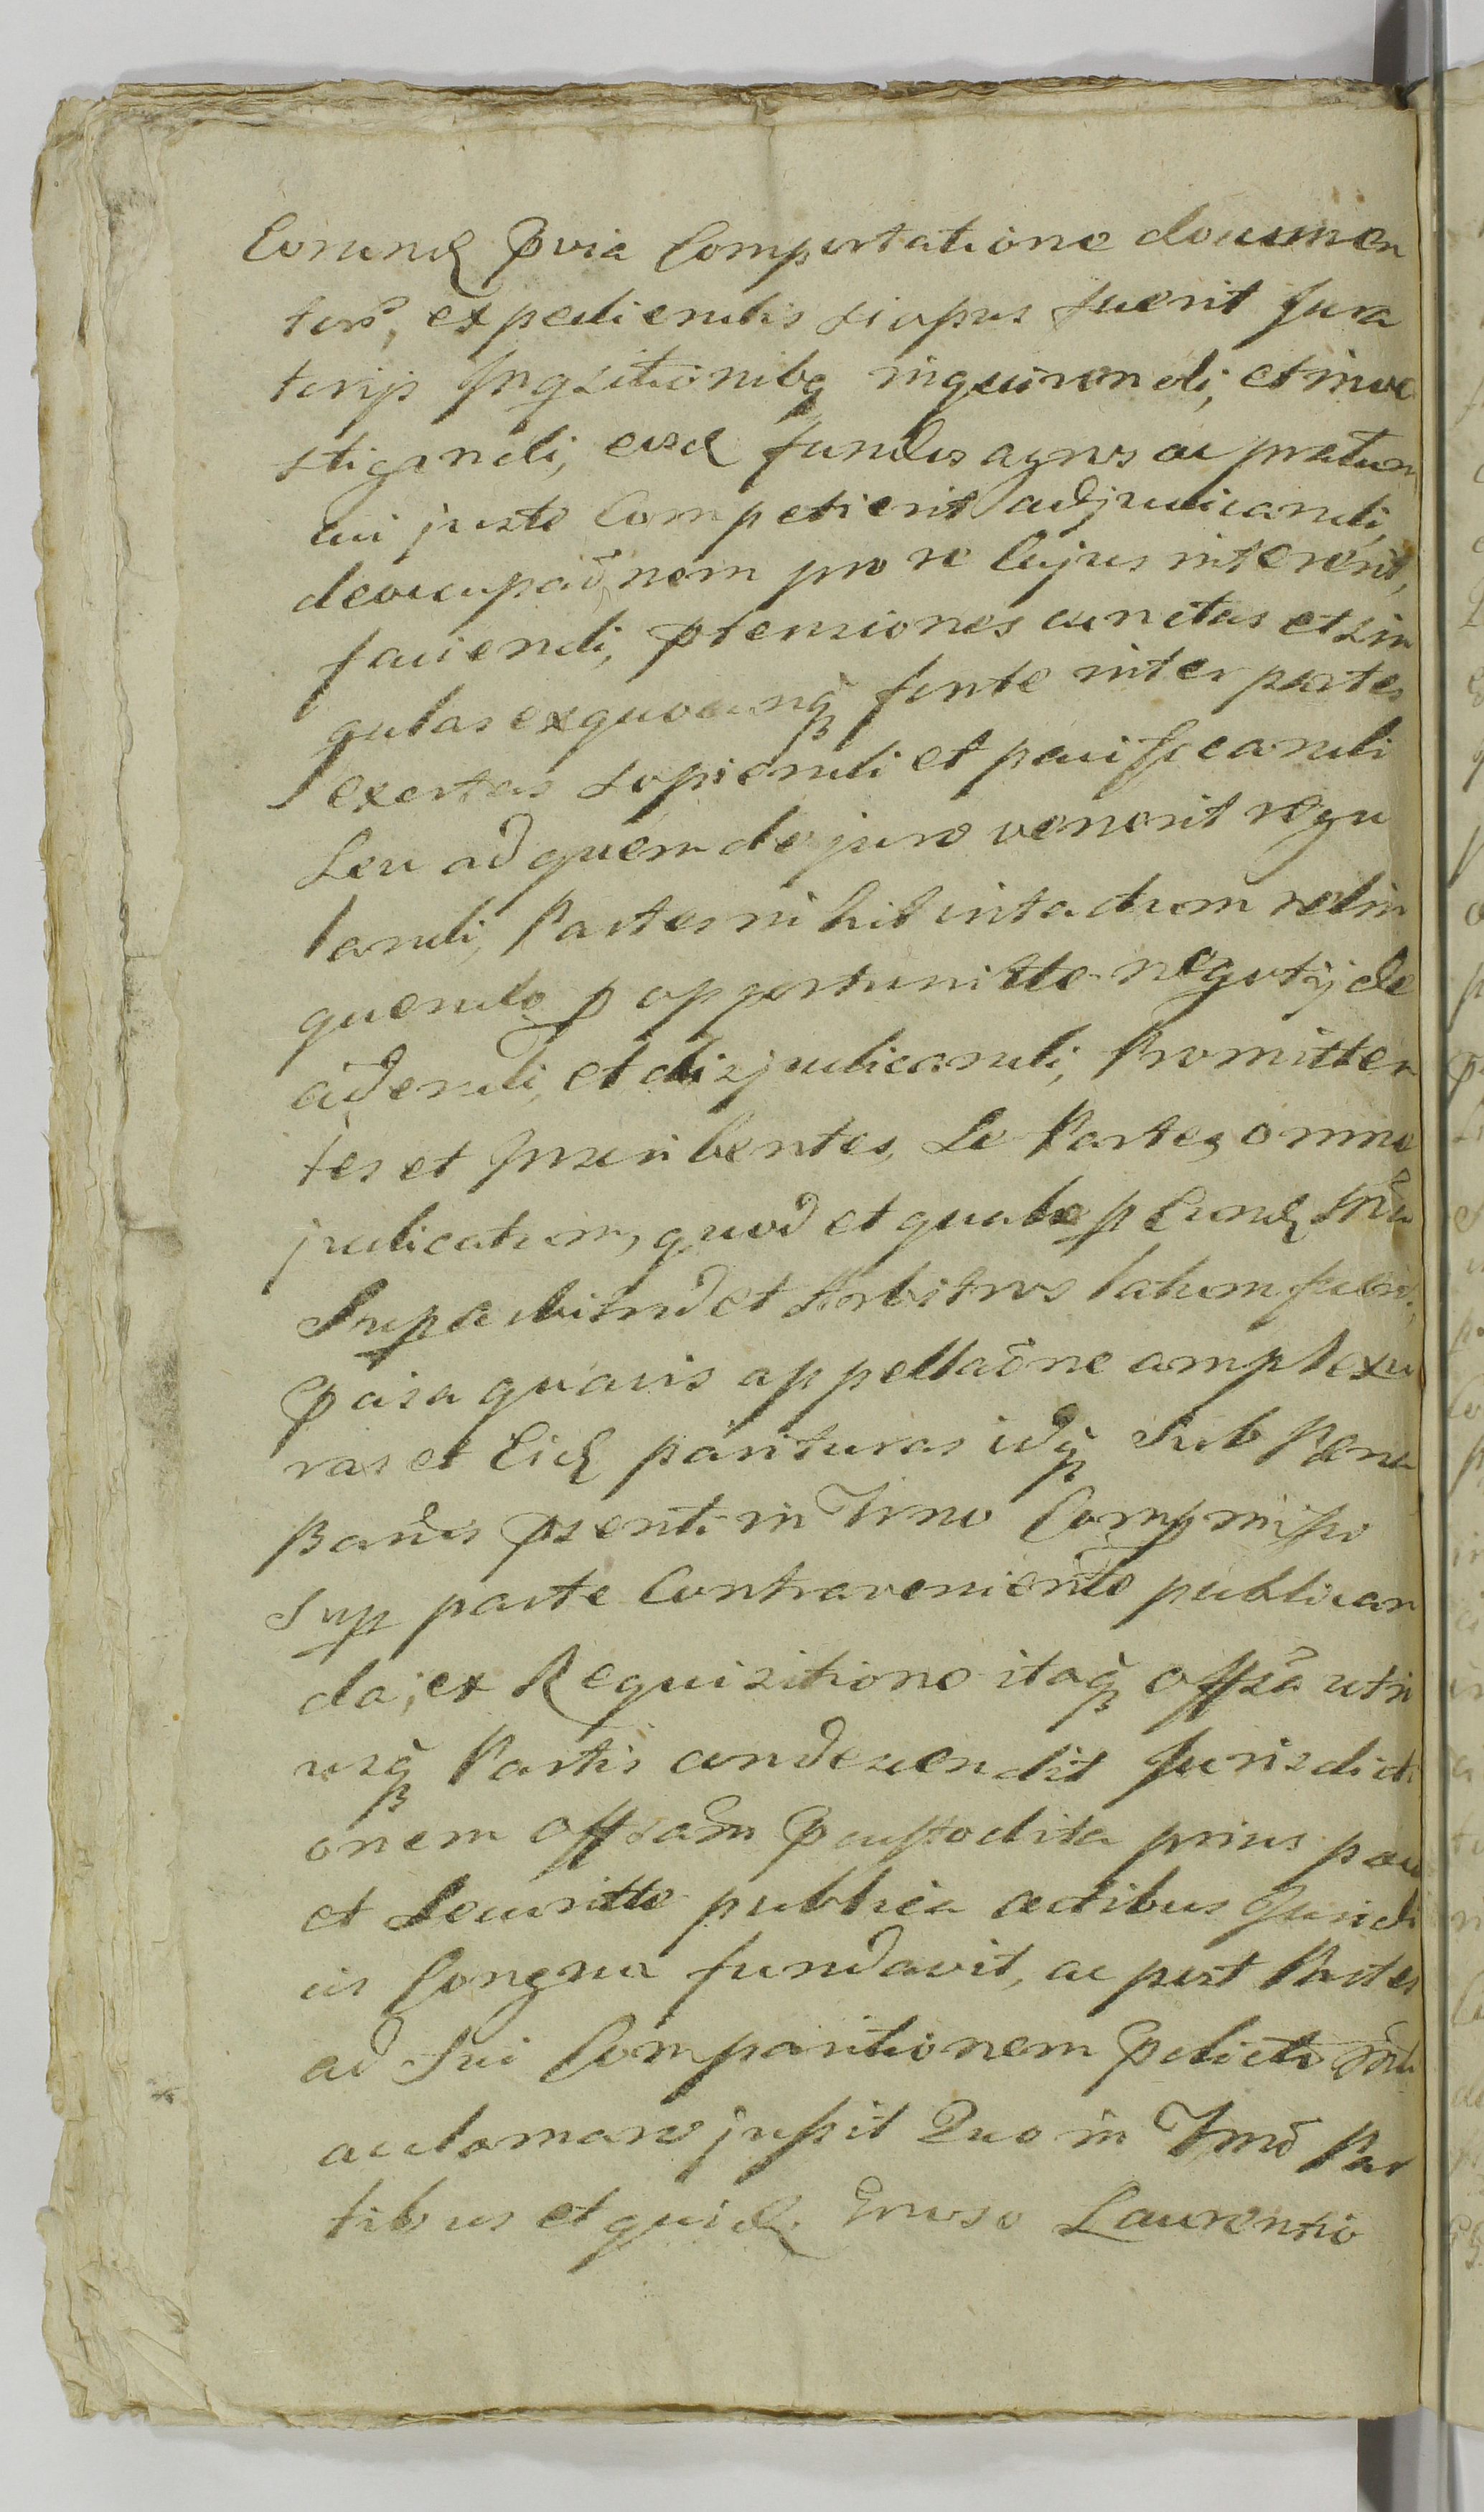 Eorund pvia Comportatione documen
tor, expediendis si opus fuerit Jura
torijs Inqsitionibq inquirendi, et inve
stigandi, eosd fundos agros ac pratum
cui juste Competierit adjudicandi,
deoccupaonem pro re Cujus intererit,
faciendi, ptensiones cunctas et sin
gulas ex quocunq fonte inter partes
exortas sopiendi et pacificandi
Seu ad quem de jure venerit regu
landi, Partes nihil intactum relin
quendo p opportunitte negotij de
cidendi, et disjudicandi, Promitten
tes et Inscribentes, Se Partes omne
judicatum, quod et quale p Eund
Superarbitrum et Arbitros latum fuerit,
pcisa quavis appellaone amplexu
ras et Eid parituras idq Sub Pena
Banis psenti in Trno Compmisso
Sup parte Contraveniente publican
da; ex Requisitione itaq offsa utri
usq Partis condescendit Jurisdicti
onem offsam pcustodita prius pace
et Securitte publica actibus Juridi
cis Congrua fundavit, ac post Partes
ad Sui Comparitionem p
acclamare jussit Quo in Trno Par
tibus et quid Gnroso Laurentio